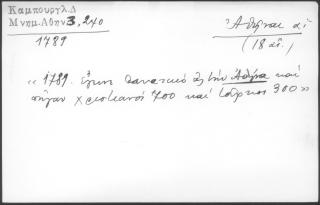 Καμπουργλ.Δ
Μνημ.Αθην 3, 240
1789
Ἀθῆναι αἱ
(18 αἰ.)
« 1789. ἔγινε θανατικό εἰς τὴν Ἀθήνα καὶ
πῆγαν χριστιανοί 700 καὶ τοῦρκοι 300 »